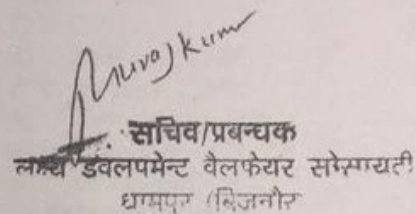 Kumar
सचिव/प्रबन्धक
लक्ष्य डवलपमेन्ट वैलफेयर सोसायटी
धामपुर (बिजनौर